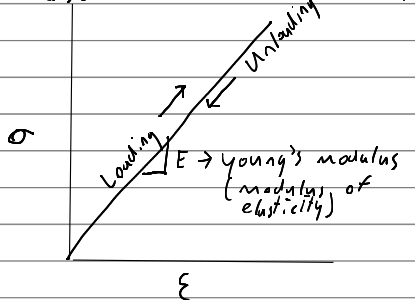 Unloading
Loading
σ
E → Young's modulus
(modulus of
elasticity)
ε